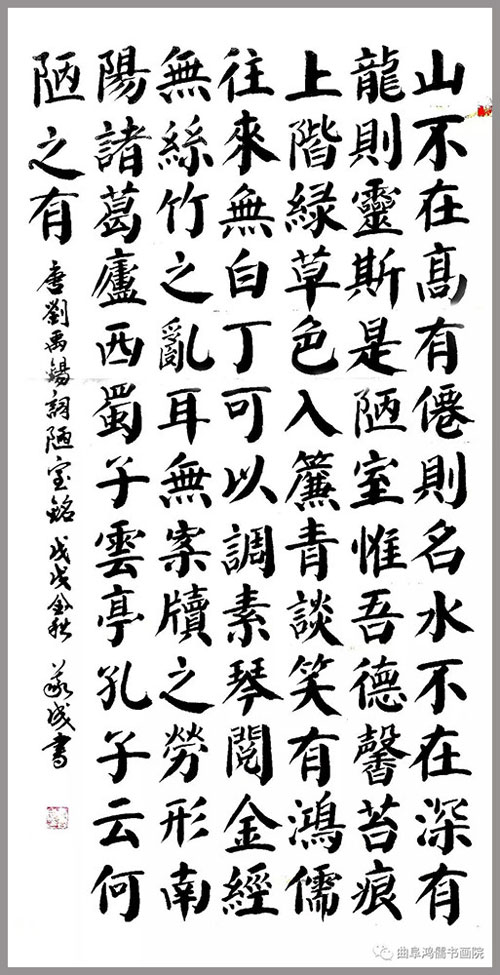 山不在高有僊則名水不在深有
龍則靈斯是陋室惟吾德馨苔痕
上階緑草色入簾青談笑有鴻儒
往來無白丁可以調素琴閱金經
無絲竹之亂耳無案牘之勞形南
陽諸葛廬西蜀子雲亭孔子云何
陋之有
唐劉禹錫詞陋室銘 戊戌金秋 義成書
曲阜鸿髓书画院